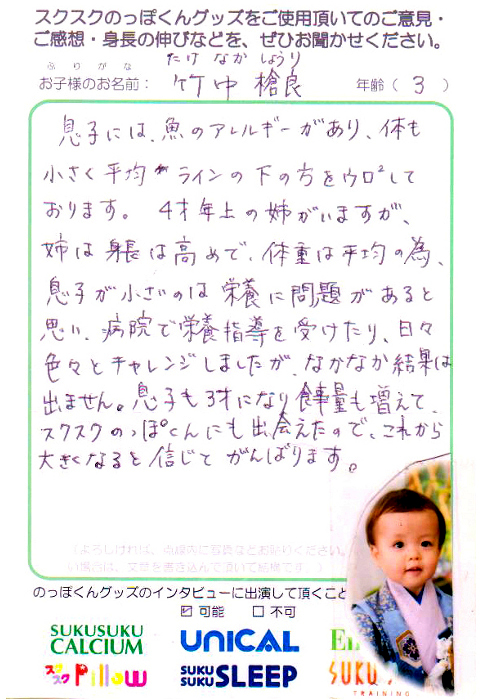 スクスクのっぽくんグッズをご使用頂いてのご意見・
ご感想・身長の伸びなどを、ぜひお聞かせください。
ふりがな たけ なか しょうり
お子様のお名前： 竹中 槍良 年齢（ 3 ）
息子には、魚のアレルギーがあり、体も
小さく平均 ラインの下の方をウロ²して
おります。 4才年上の姉がいますが、
姉は身長は高めで、体重は平均の為、
息子が小さいのは栄養に問題があると
思い、病院で栄養指導を受けたり、日々
色々とチャレンジしましたが、なかなか結果は
出ません。息子も3才になり食事量も増えて、
スクスクのっぽくんにも出会えたので、これから
大きくなると信じて がんばります。
（よろしければ、点線内に写真などお貼りください。
い場合は、文章を書き込んで頂いて結構です。）
のっぽくんグッズのインタビューに出演して頂くこと
☑ 可能 □ 不可
SUKUSUKU
CALCIUM
UNICAL
En
スクスク Pillow
SUKU
SUKU SLEEP
SUKU
TRAINING